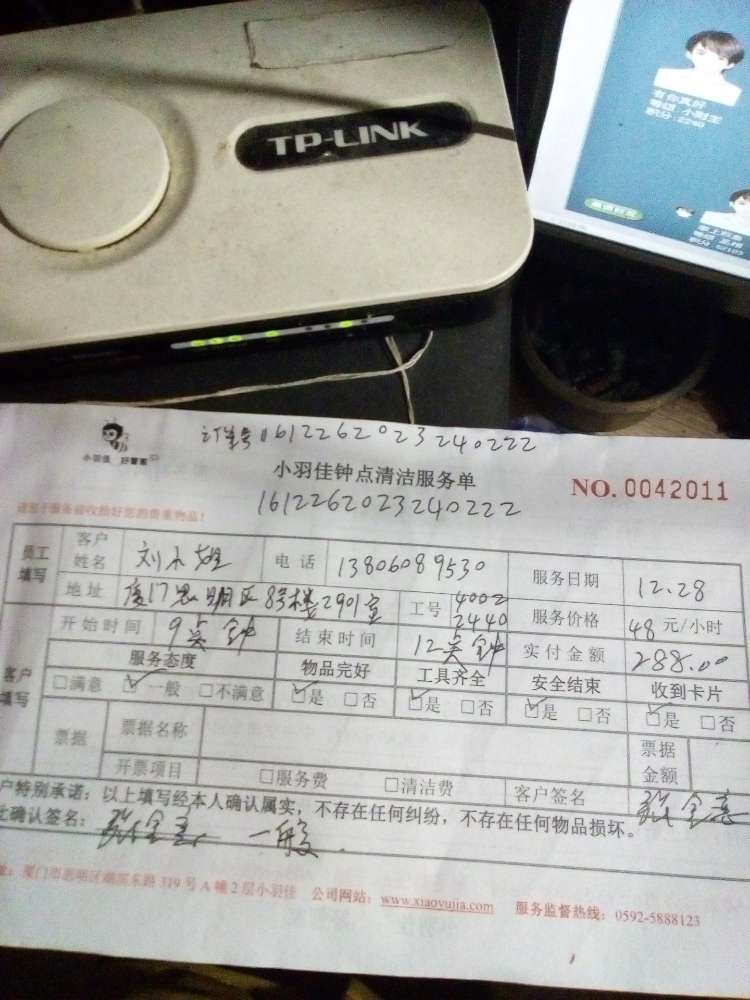 TP-LINK
有你真好
等级:小财主
积分:2240
邀请好友
订单号 1612262023240222
小羽佳 好管家
小羽佳钟点清洁服务单
NO. 0042011
1612262023240222
员工填写
客户姓名 刘小姐 电话 13806089530 服务日期 12.28
地址 厦门思明区8号楼2901室 工号 4002 2440 服务价格 48元/小时
开始时间 9点钟 结束时间 12点钟 实付金额 288.00
客户填写
服务态度 物品完好 工具齐全 安全结束 收到卡片
□满意 ☑一般 □不满意 ☑是 □否 ☑是 □否 ☑是 □否 ☑是 □否
票据 票据名称 票据金额
开票项目 □服务费 □清洁费 客户签名
户特别承诺:以上填写经本人确认属实,不存在任何纠纷,不存在任何物品损坏。
此确认签名: 一般
址:厦门市思明区湖滨东路319号A幢2层小羽佳 公司网站:www.xiaoyujia.com 服务监督热线:0592-5888123